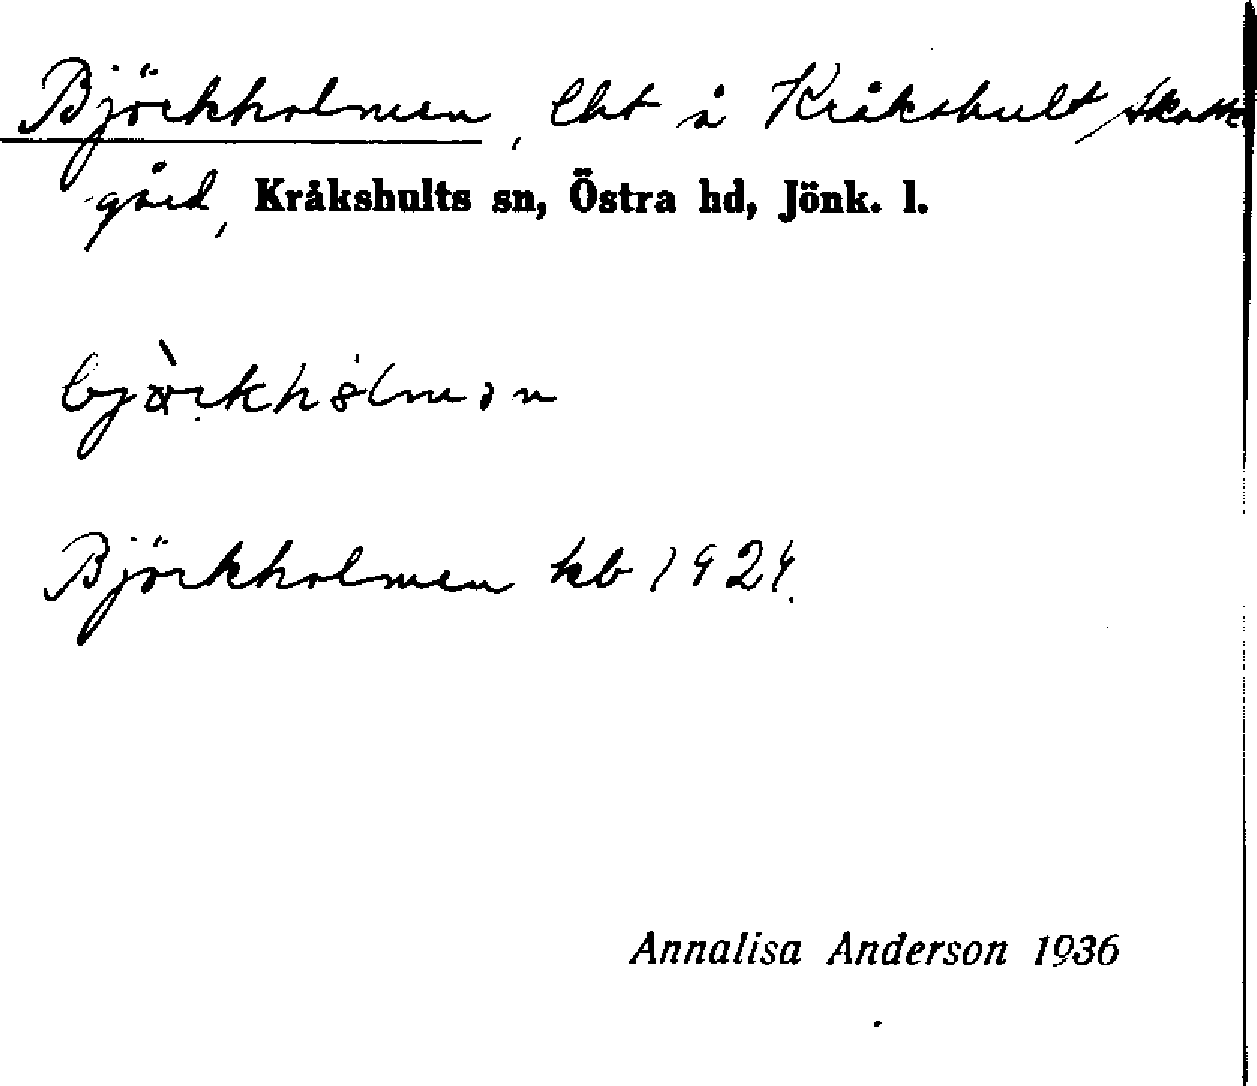 Björkholmen, lht å Kråkshult skatte
gård, Kråkshults sn, Östra hd, Jönk. l.
Björkholmen kb 1924.
Annalisa Anderson 1936